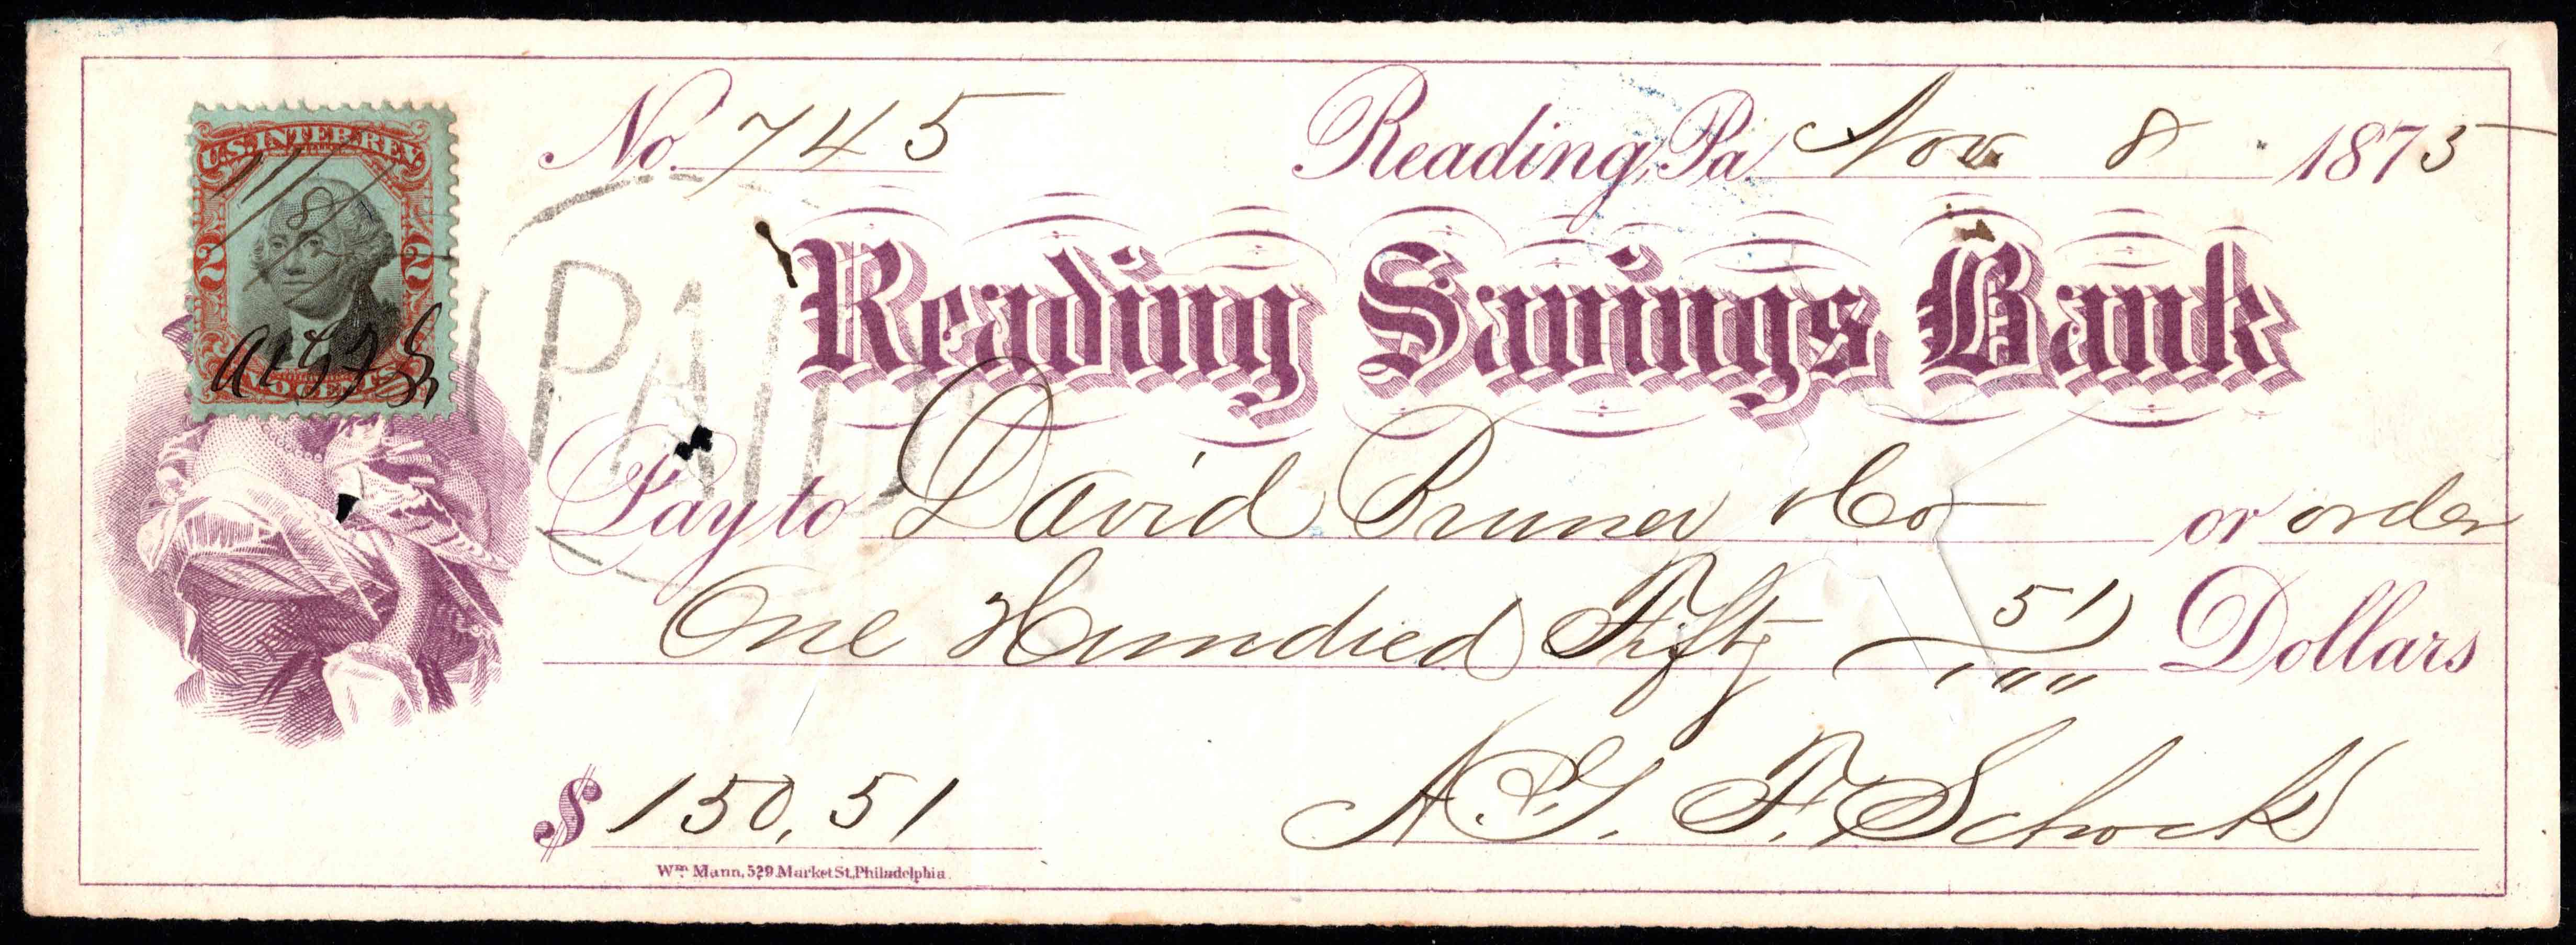 U.S. INTER. REV.
8
2 2
TWO CENTS
No. 745 Reading, Pa Nov 8 1875
Reading Savings Bank
PAID
Pay to David Bruner & Co or order
One Hundred Fifty 51/100 Dollars
$ 150,51 A. G. F. Schock
Wm. Mann, 529 Market St, Philadelphia.